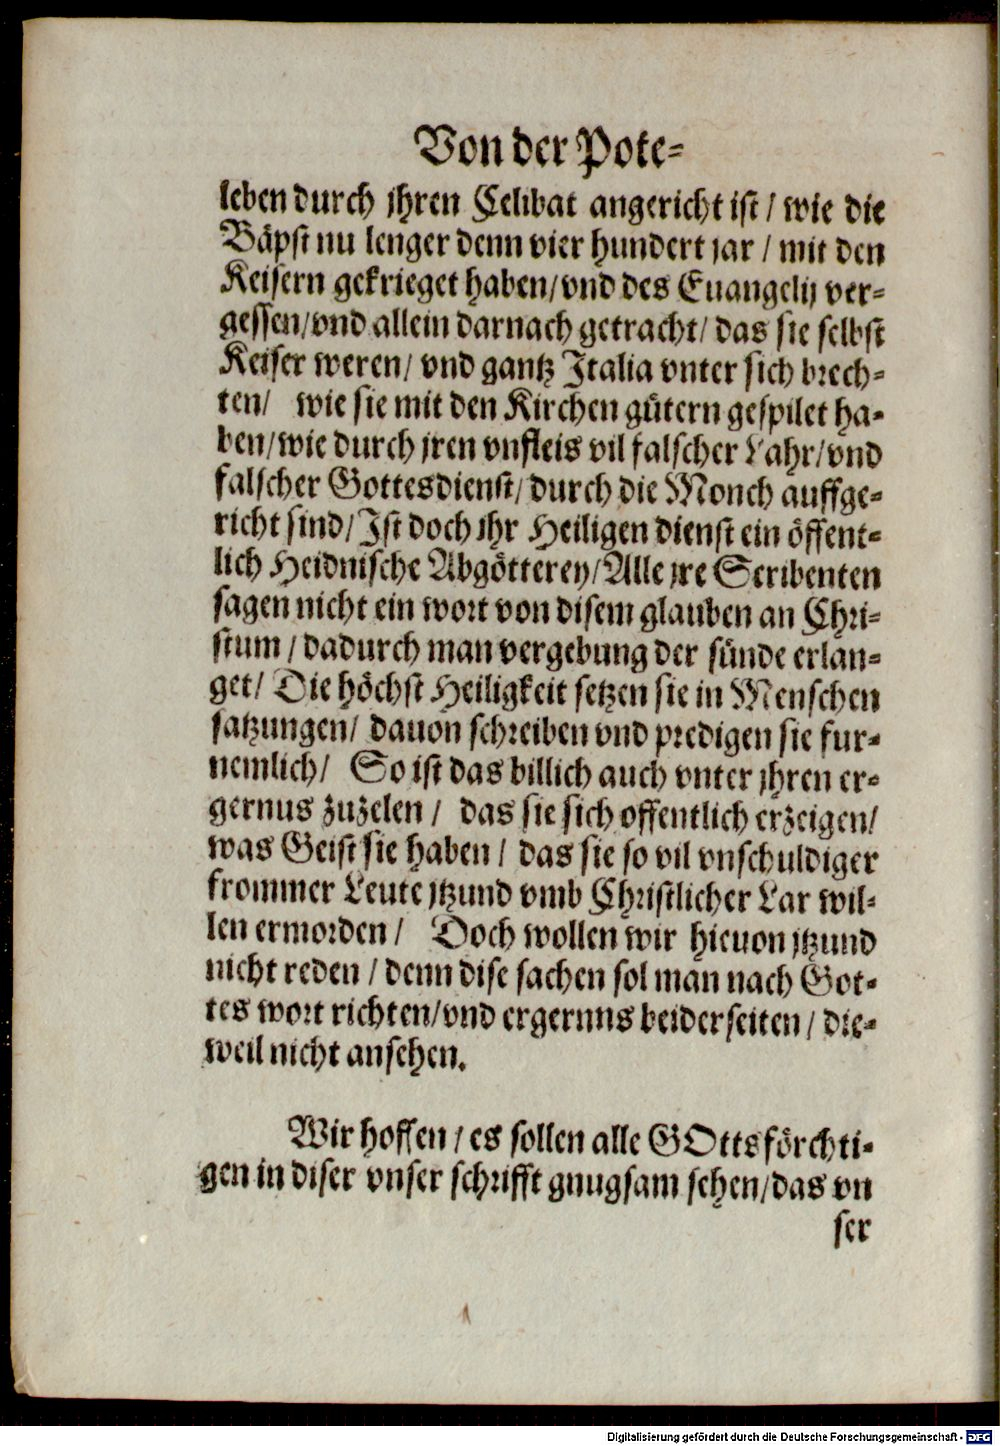 Von der Pote-
leben durch jhren Celibat angericht ist / wie die
Bäpst nu lenger denn vier hundert jar / mit den
Keisern gekrieget haben/vnd des Euangelij ver-
gessen/vnd allein darnach getracht/ das sie selbst
Keiser weren/ vnd gantz Italia vnter sich brech-
ten/ wie sie mit den Kirchen gütern gespilet ha-
ben/wie durch jren vnfleis vil falscher Lahr/vnd
falscher Gottesdienst/durch die Monch auffge-
richt sind/Ist doch jhr Heiligen dienst ein öffent-
lich Heidnische Abgötterey/Alle jre Scribenten
sagen nicht ein wort von disem glauben an Chri-
stum / dadurch man vergebung der sünde erlan-
get/ Die höchst Heiligkeit setzen sie in Menschen
satzungen/ dauon schreiben vnd predigen sie fur-
nemlich/ So ist das billich auch vnter jhren er-
gernus zuzelen / das sie sich offentlich erzeigen/
was Geist sie haben / das sie so vil vnschuldiger
frommer Leute jtzund vmb Christlicher Lar wil-
len ermorden / Doch wollen wir hieuon jtzund
nicht reden / denn dise sachen sol man nach Got-
tes wort richten/vnd ergernus beiderseiten / die-
weil nicht ansehen.
Wir hoffen / es sollen alle GOttsförchti-
gen in diser vnser schrifft gnugsam sehen/das vn
ser
Digitalisierung gefördert durch die Deutsche Forschungsgemeinschaft - DFG